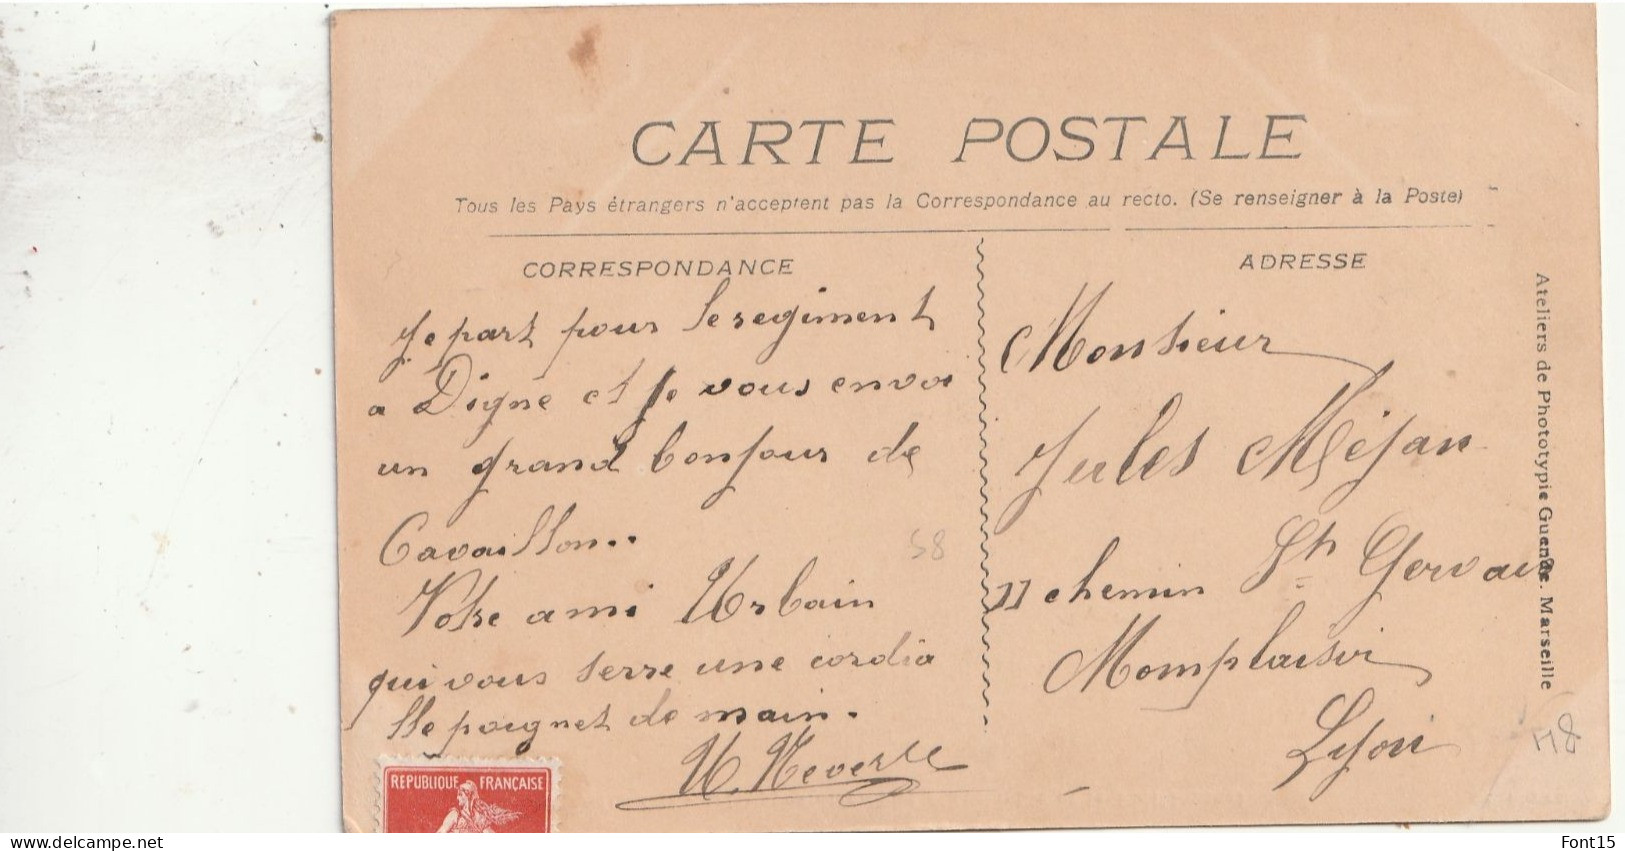 CARTE POSTALE
Tous les Pays étrangers n'acceptent pas la Correspondance au recto. (Se renseigner à la Poste)
CORRESPONDANCE
Je part pour le regiment
a Digne et je vous envoi
un grand bonjour de
Cavaillon..
Votre ami Urbain
qui vous serre une cordia
lle poignet de main.
ADRESSE
Monsieur
Jules Méjan
11 chemin St Gervais
Momplaisir
Lyon
Ateliers de Phototypie Guende. Marseille
58
58
REPUBLIQUE FRANÇAISE
delcampe.net
Font15